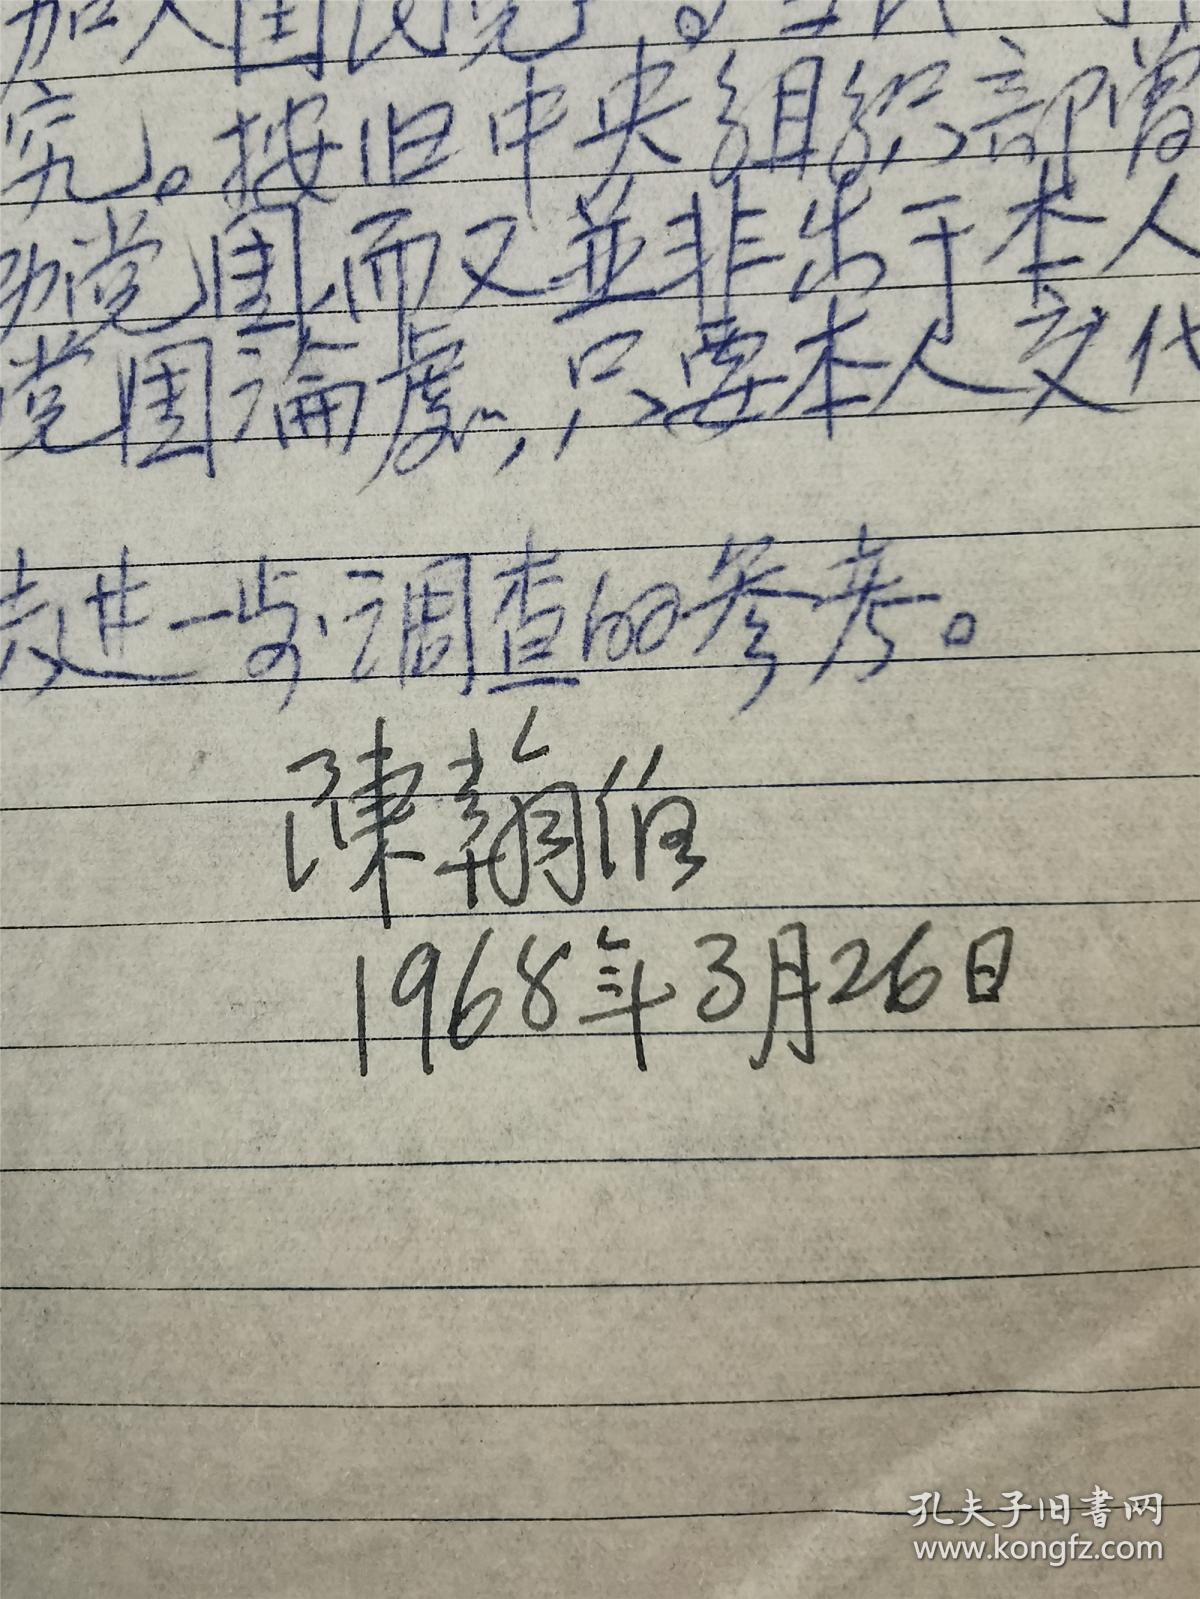 加入国民党。当
究。按旧中央组织部曾
党团,而又並非出于本人
党团論處,只要本人交代
進一步调查的参考。
陳翰伯
1968年3月26日
孔夫子旧書网
www.kongfz.com